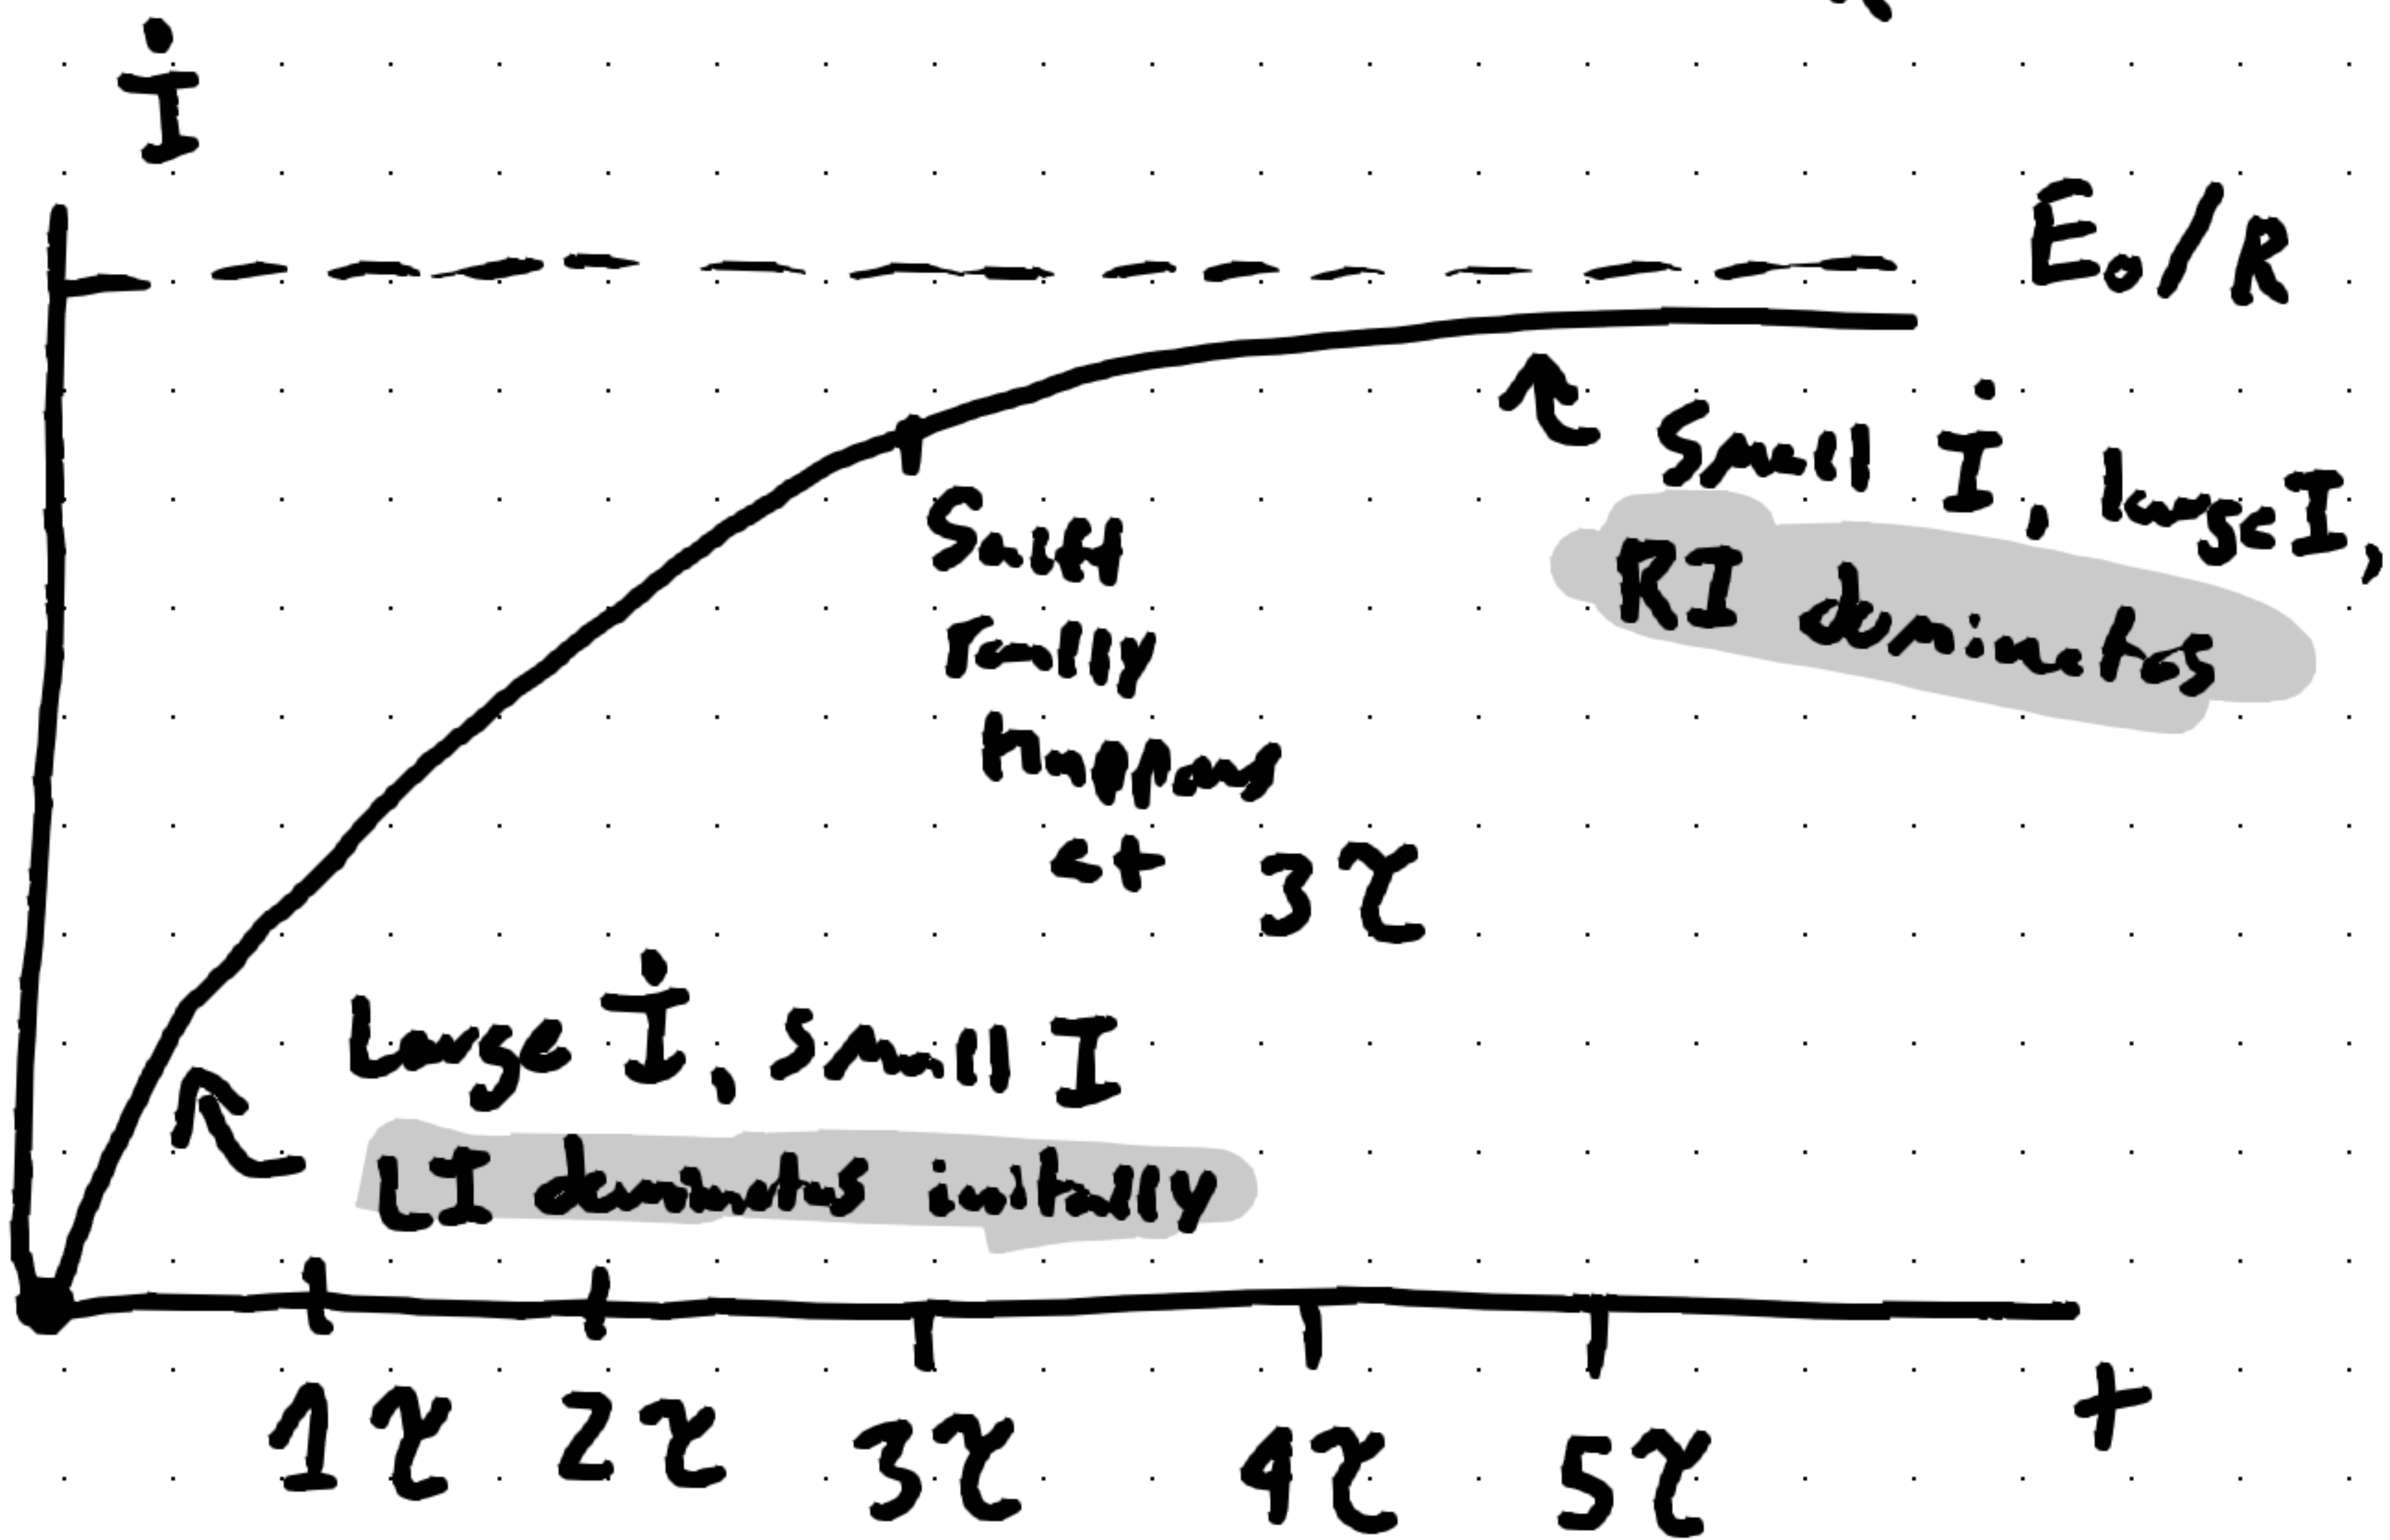 İ
E₀/R
Small İ, large I,
RI dominates
Shift
really
happens
at 3τ
Large İ, small I
LI dominates initially
1τ 2τ 3τ 4τ 5τ
t